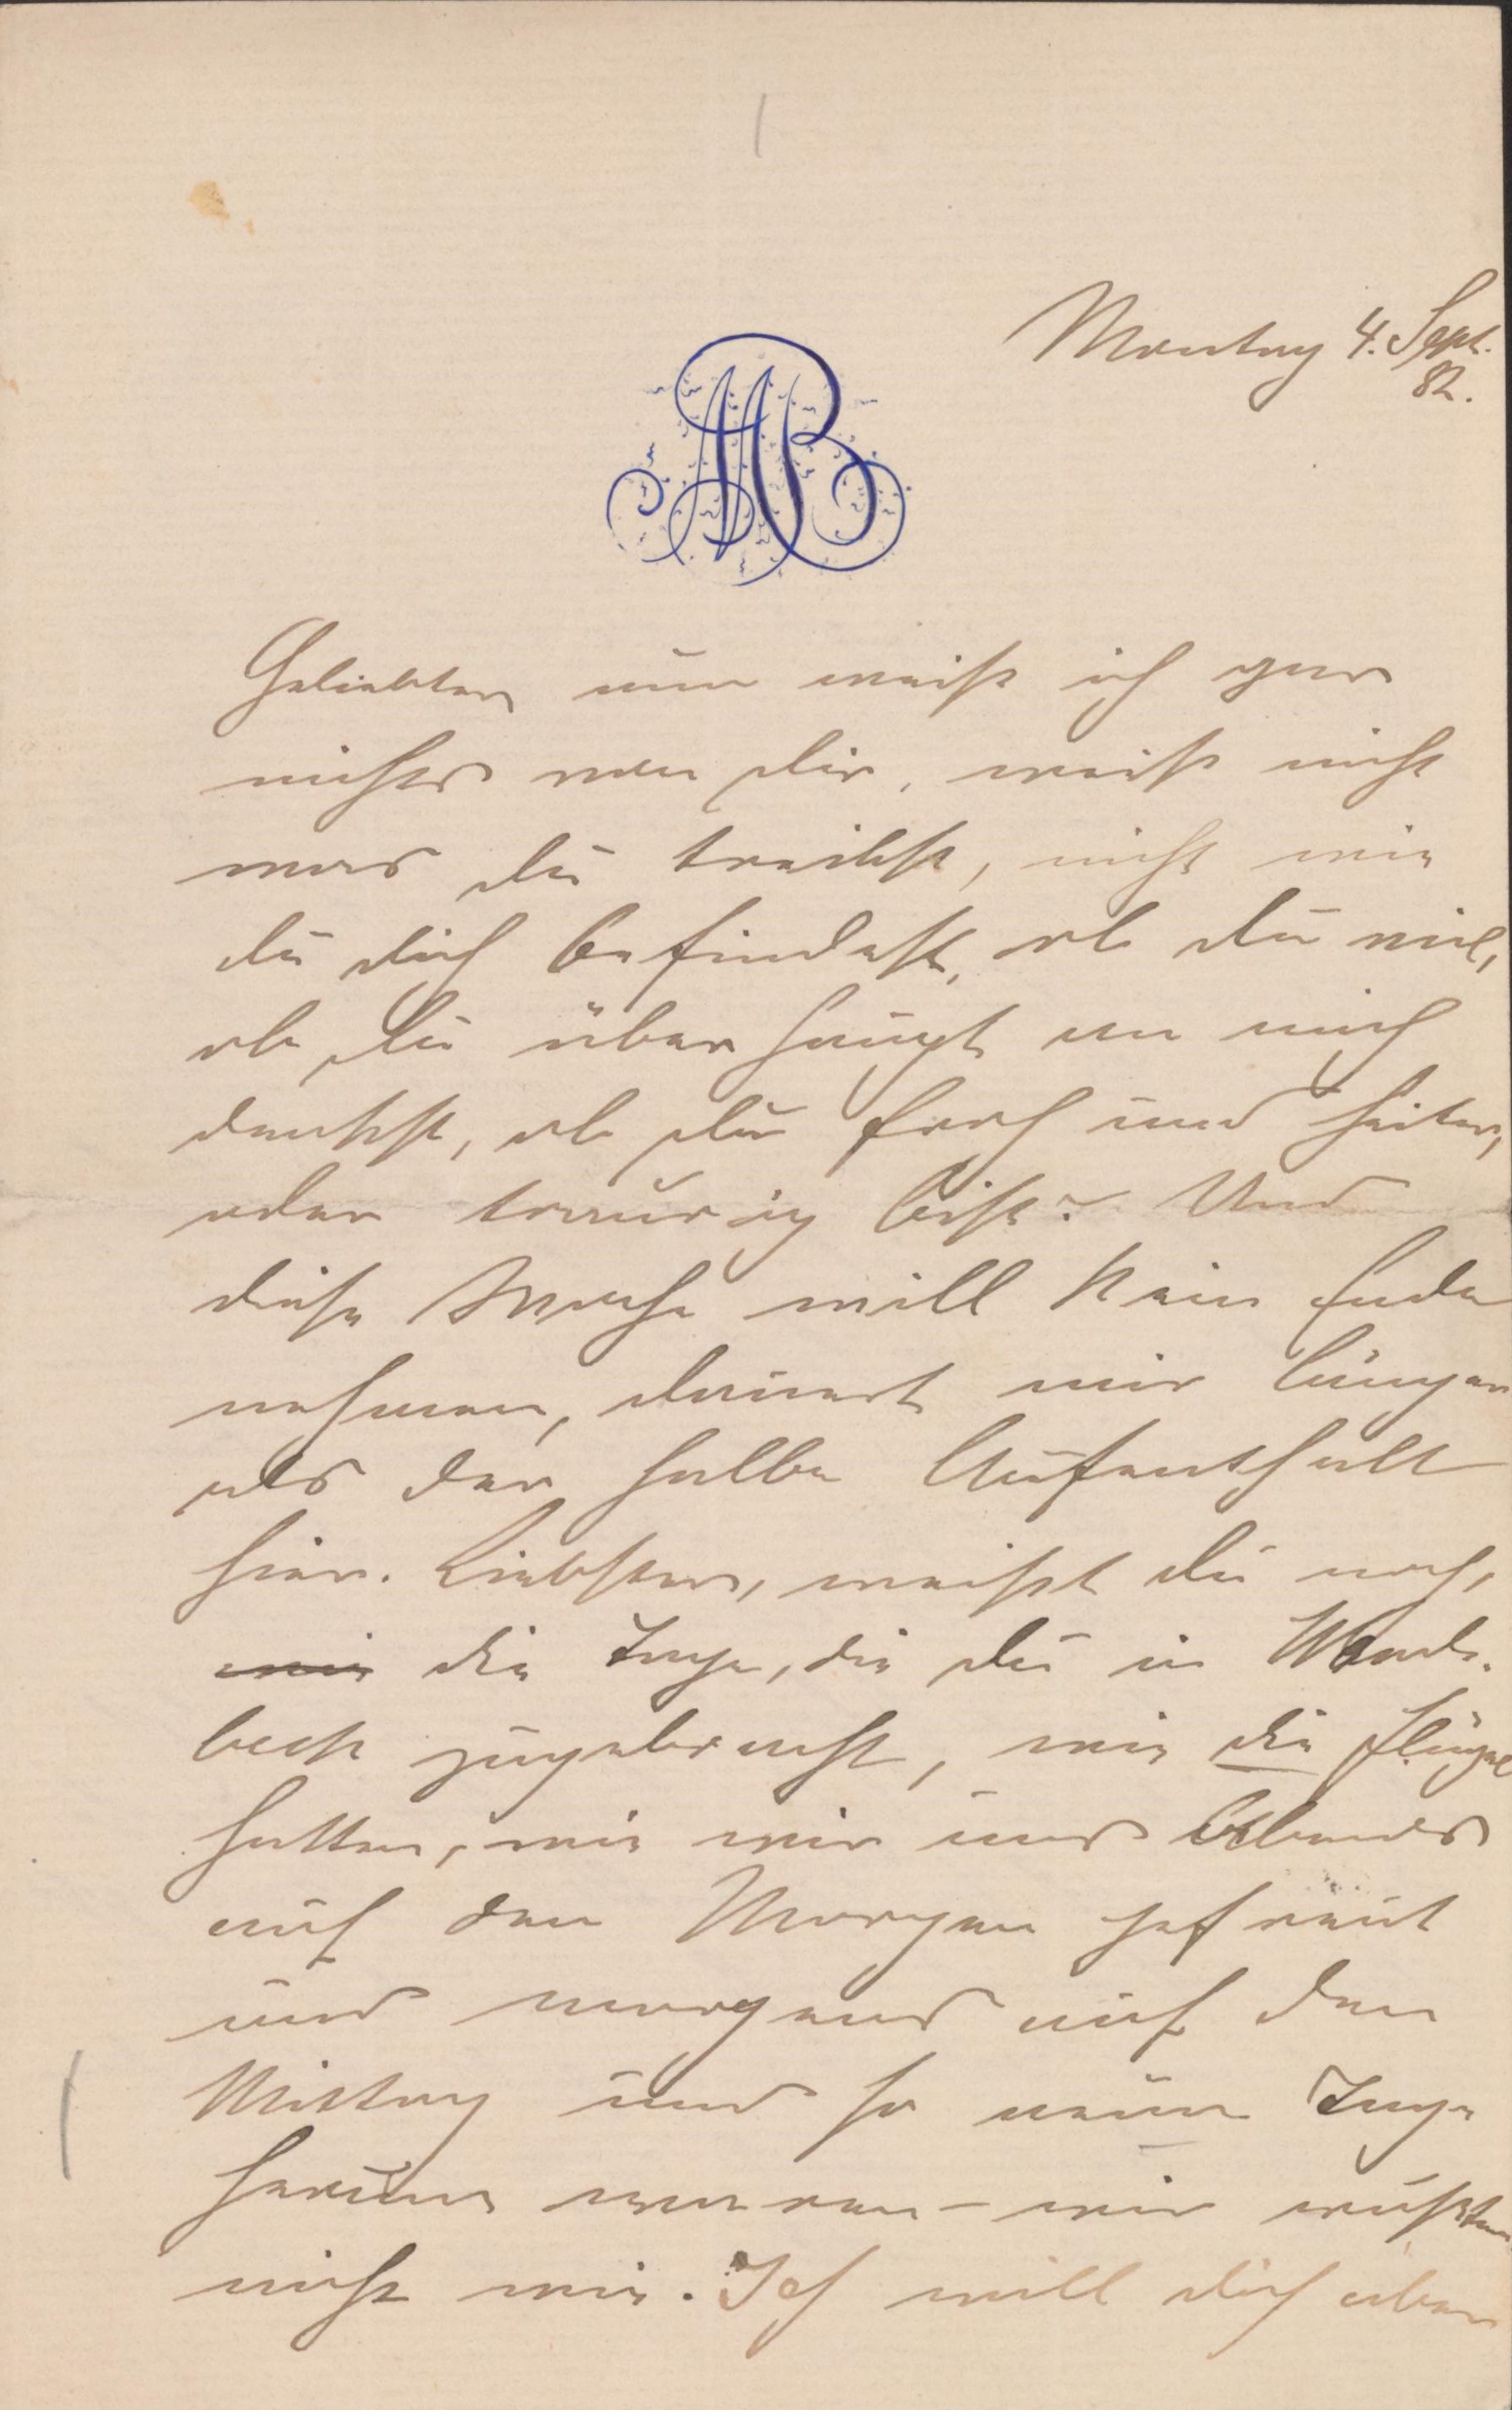 Montag 4. Sept.
82.
MB
Geliebter nun weiß ich gar
nichts von Dir, weiß nicht
was Du treibst, nicht wie
Du Dich befindest, ob Du viel,
ob Du überhaupt an mich
denkst, ob Du froh und heiter,
oder traurig bist? Und
diese Woche will kein Ende
nehmen, dauert mir länger
als der halbe Aufenthalt
hier. Liebster, weißt Du noch,
wie die Tage, die Du in Wands-
beck zugebracht, wie die Flügel
hatten, wie wir uns Abends
auf den Morgen gefreut
und morgens auf den
Mittag und so neun Tage
herum waren – wir wußten
nicht wie. Ich will Dich aber